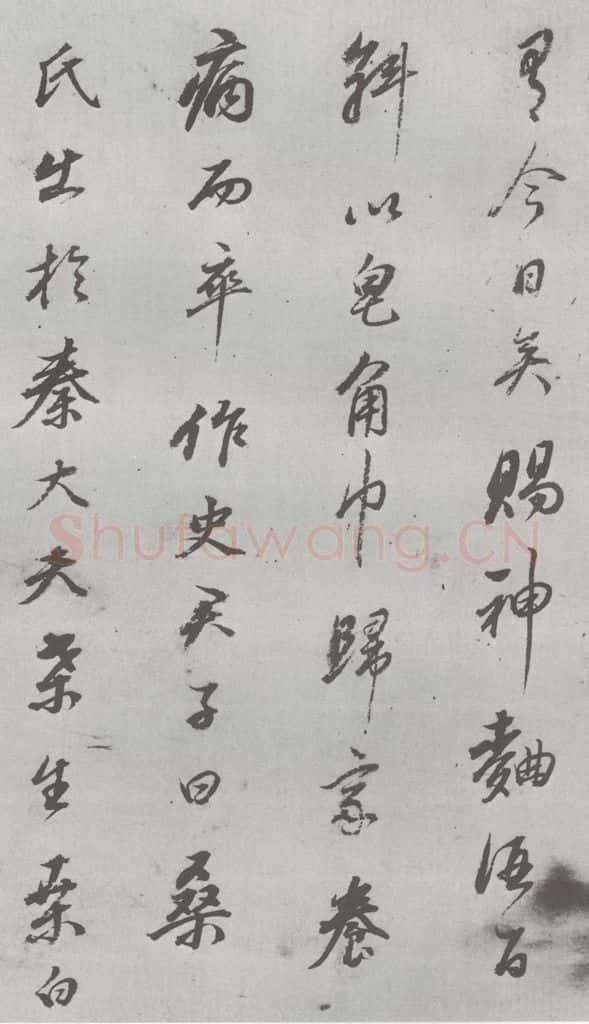 有今日矣賜神麯伍百
斛以皂角巾歸家養
病而卒作史君子曰桑
氏出於秦大夫桑生桑白
Shufawang.CN